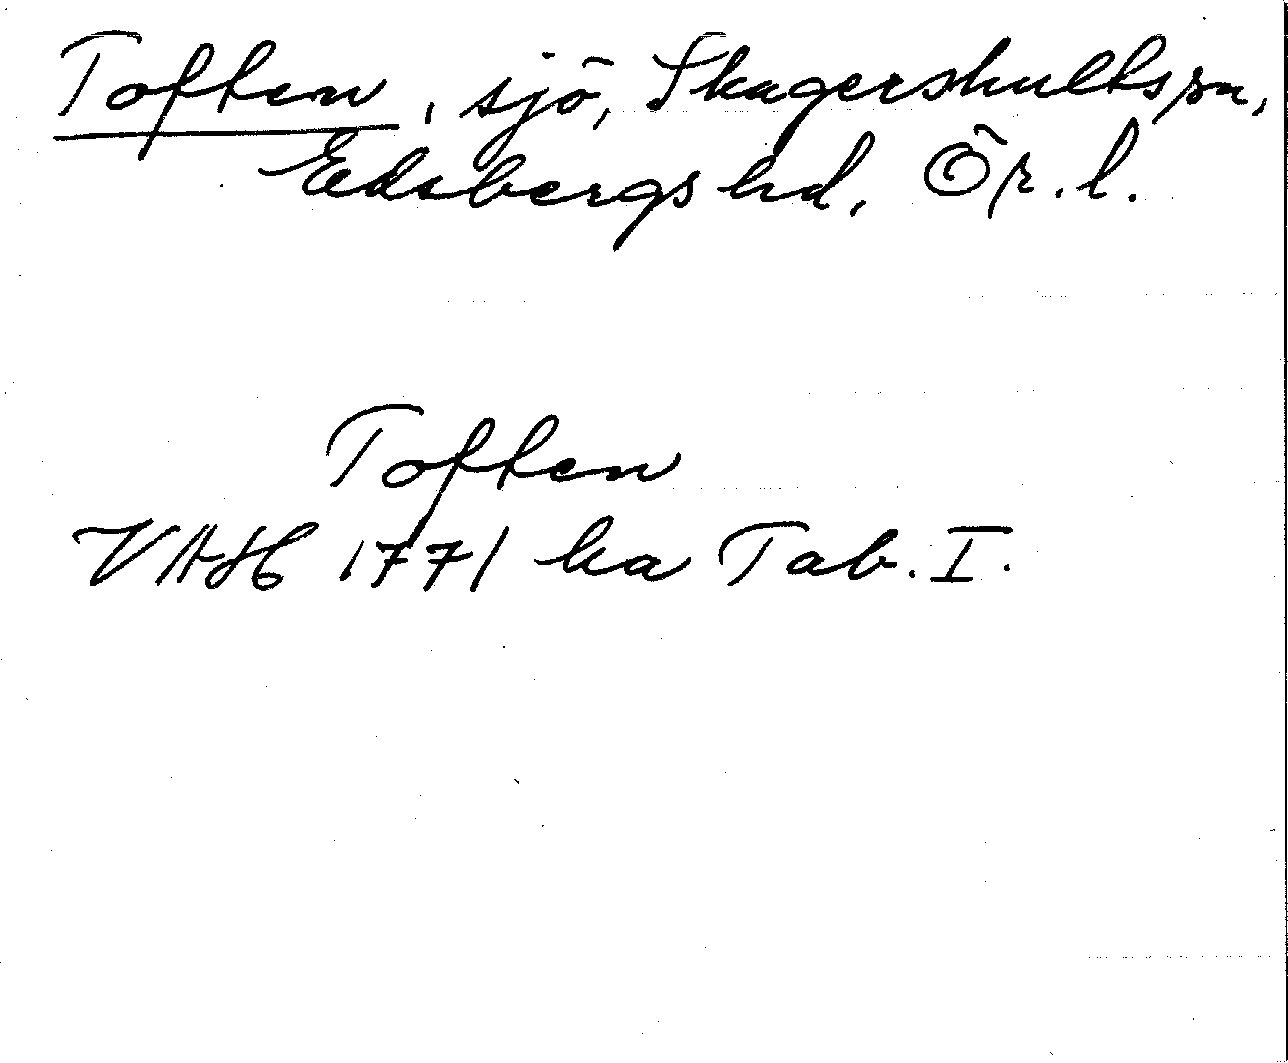 Toften, sjö, Skagershults sn,
Edsbergs hd, Ör. l.
Toften
VAH 1771 ka Tab. I.